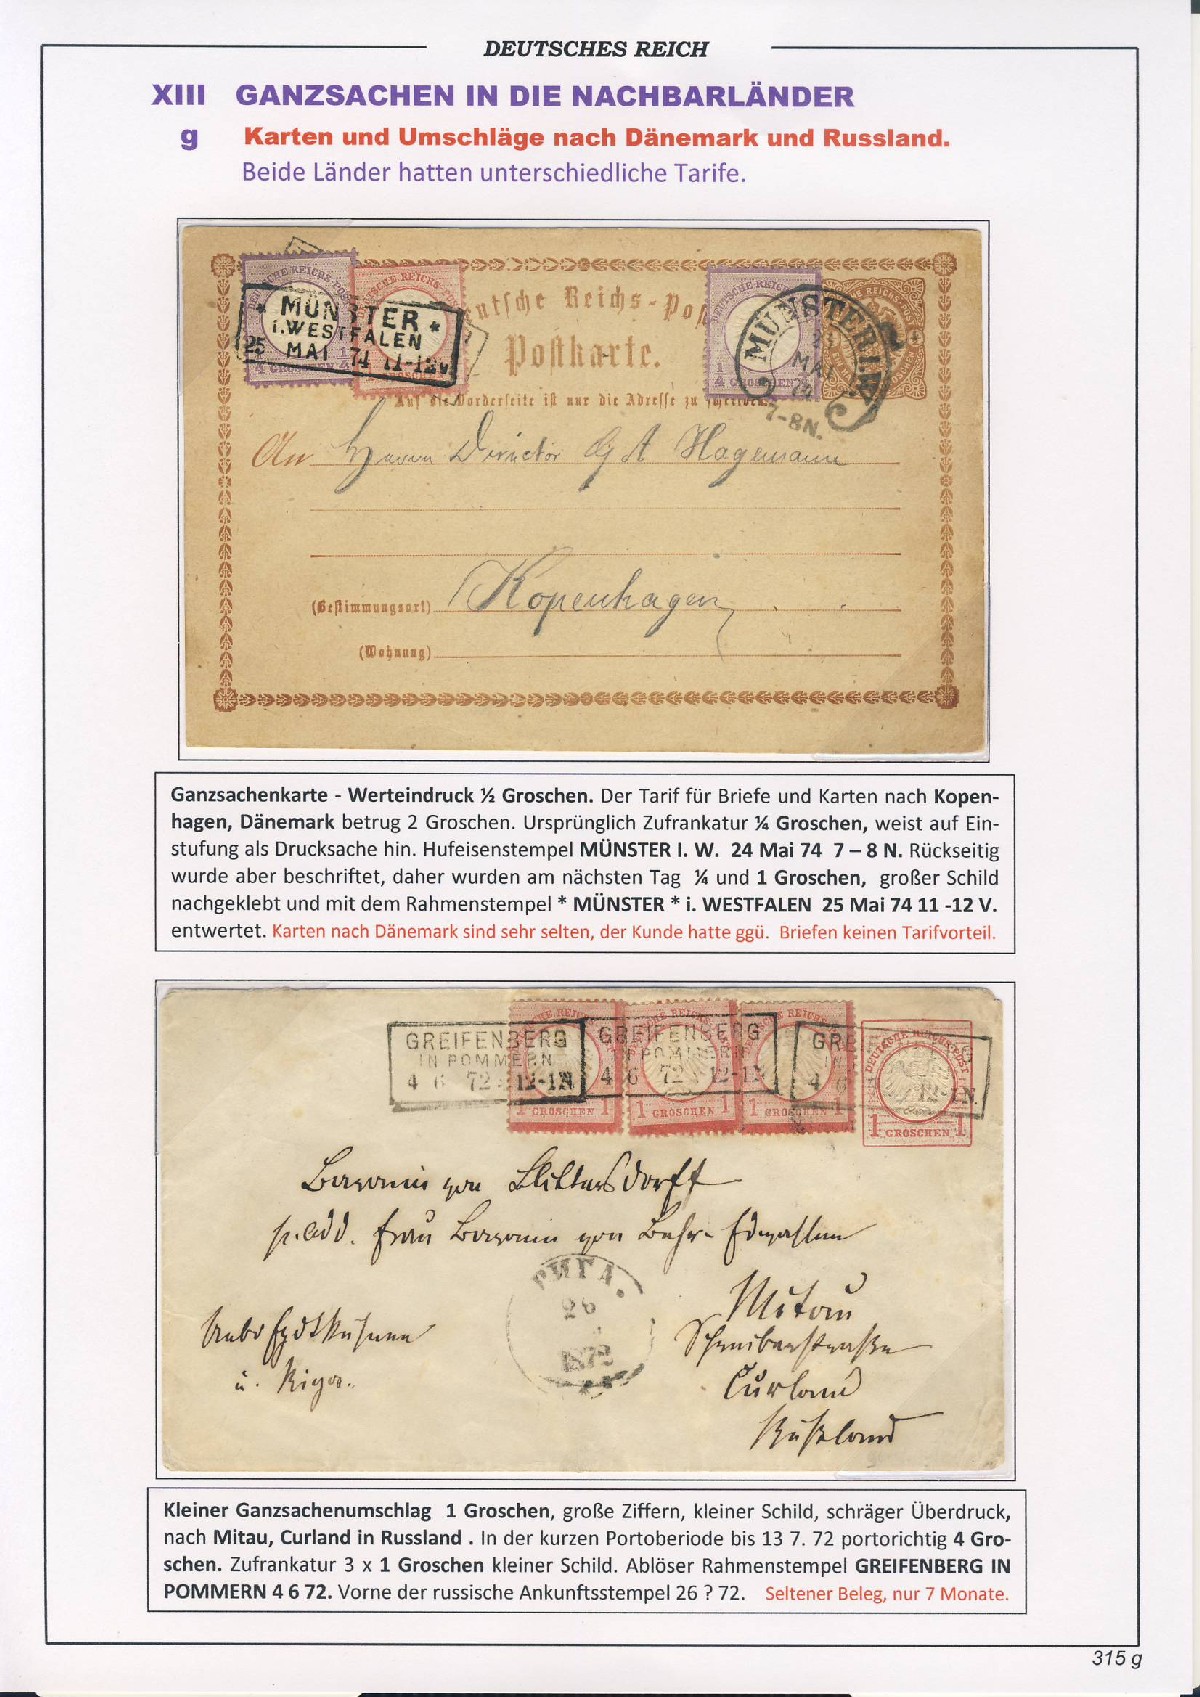 DEUTSCHES REICH
XIII GANZSACHEN IN DIE NACHBARLÄNDER
g Karten und Umschläge nach Dänemark und Russland.
Beide Länder hatten unterschiedliche Tarife.
* MÜNSTER *
i. WESTFALEN
25 MAI 74 11-12V.
Deutsche Reichs-Post
Postkarte.
MÜNSTER I.W.
MAI
74
7-8N.
1/4 GROSCHEN
1/4 GROSCHEN
Auf die Vorderseite ist nur die Adresse zu schreiben
An Herrn Director G A Hagemann
(Bestimmungsort) Kopenhagen
(Wohnung)
Ganzsachenkarte - Werteindruck ½ Groschen. Der Tarif für Briefe und Karten nach Kopen-
hagen, Dänemark betrug 2 Groschen. Ursprünglich Zufrankatur ¼ Groschen, weist auf Ein-
stufung als Drucksache hin. Hufeisenstempel MÜNSTER I. W. 24 Mai 74 7 – 8 N. Rückseitig
wurde aber beschriftet, daher wurden am nächsten Tag ¼ und 1 Groschen, großer Schild
nachgeklebt und mit dem Rahmenstempel * MÜNSTER * i. WESTFALEN 25 Mai 74 11 -12 V.
entwertet. Karten nach Dänemark sind sehr selten, der Kunde hatte ggü. Briefen keinen Tarifvorteil.
GREIFENBERG GREIFENBERG
IN POMMERN IN POMMERN
4 6 72 12-1N 4 6 72 12-1N 4 6 12-1N.
1 GROSCHEN 1 1 GROSCHEN 1 1 GROSCHEN 1 1 GROSCHEN 1
p. add. Frau Baronin von Behr-Edwahlen
РИГА.
26
1872
Mitau
Schreiberstraße
Curland
Rußland
u. Riga.
Kleiner Ganzsachenumschlag 1 Groschen, große Ziffern, kleiner Schild, schräger Überdruck,
nach Mitau, Curland in Russland . In der kurzen Portoberiode bis 13 7. 72 portorichtig 4 Gro-
schen. Zufrankatur 3 x 1 Groschen kleiner Schild. Ablöser Rahmenstempel GREIFENBERG IN
POMMERN 4 6 72. Vorne der russische Ankunftsstempel 26 ? 72. Seltener Beleg, nur 7 Monate.
315 g